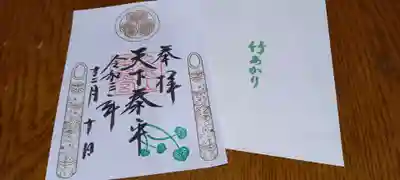 奉拝
天下泰平
令和三年
十二月十日
竹あかり